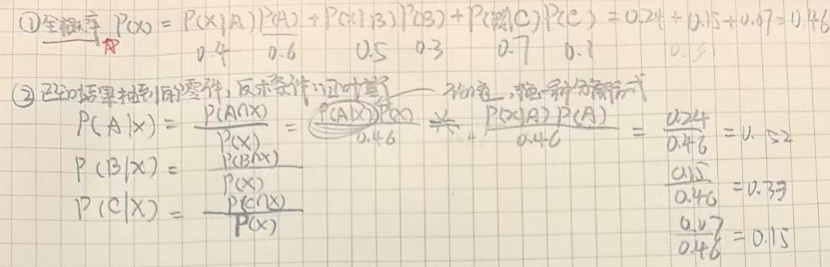 ①全概率 P(X) = P(X|A)P(A) + P(X|B)P(B) + P(X|C)P(C) = 0.24 + 0.15 + 0.07 = 0.46
0.4 0.6 0.5 0.3 0.7 0.1
② 已知结果抽到的零件, 反求条件
P(A|X) = P(A∩X) / P(X) = P(A|X)P(X) / 0.46 P(X|A)P(A) / 0.46 = 0.24 / 0.46 = 0.52
P(B|X) = P(B∩X) / P(X) 0.15 / 0.46 = 0.33
P(C|X) = P(C∩X) / P(X) 0.07 / 0.46 = 0.15